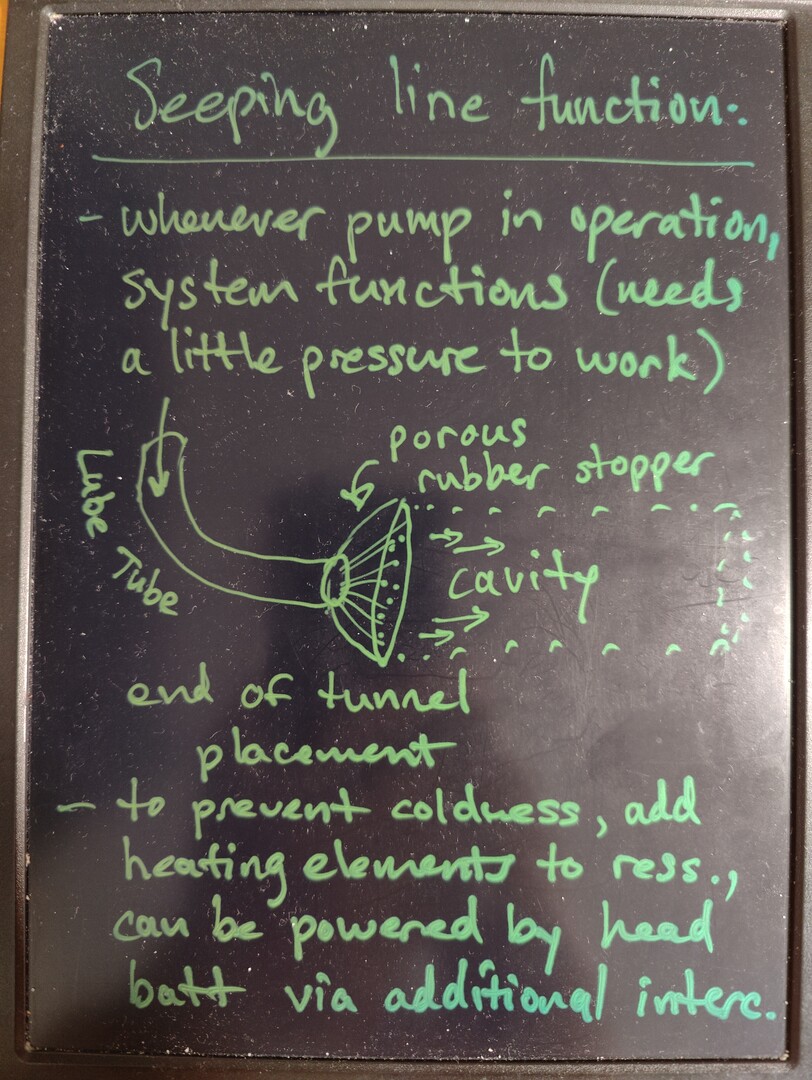 Seeping line function:.
- whenever pump in operation,
system functions (needs
a little pressure to work)
porous
rubber stopper
Lube Tube
cavity
end of tunnel
placement
- to prevent coldness, add
heating elements to ress.,
can be powered by head
batt via additional interc.